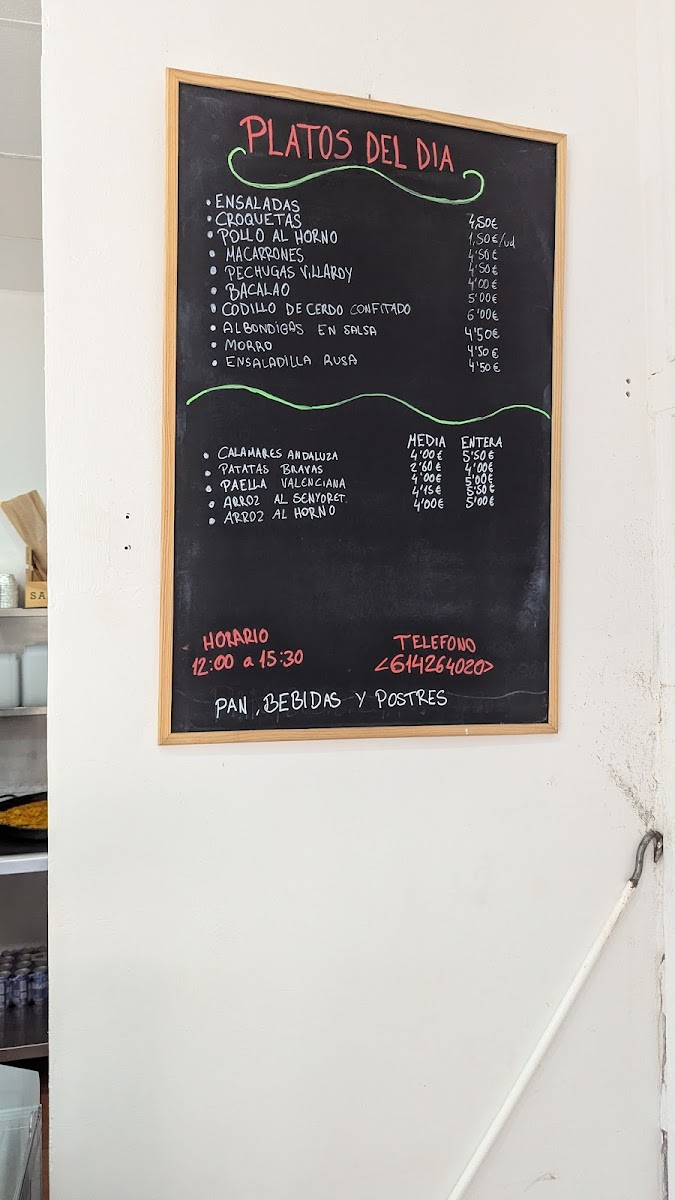 PLATOS DEL DIA
• ENSALADAS 4,50€
• CROQUETAS 1,50€/ud
• POLLO AL HORNO 4'50€
• MACARRONES 4'50€
• PECHUGAS VILLAROY 4'00€
• BACALAO 5'00€
• CODILLO DE CERDO CONFITADO 6'00€
• ALBONDIGAS EN SALSA 4'50€
• MORRO 4'50€
• ENSALADILLA RUSA 4'50€
MEDIA ENTERA
• CALAMARES ANDALUZA 4'00€ 5'50€
• PATATAS BRAVAS 2'60€ 4'00€
• PAELLA VALENCIANA 4'00€ 5'00€
• ARROZ AL SENYORET. 4'15€ 5'50€
• ARROZ AL HORNO 4'00€ 5'00€
HORARIO
12:00 a 15:30
TELEFONO
<614264020>
PAN, BEBIDAS Y POSTRES
SA